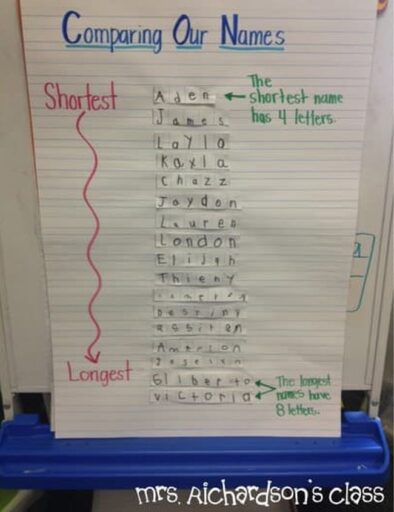 Comparing Our Names
Shortest
Aden
The
shortest name
has 4 letters.
James
Layla
Kayla
Chazz
Jaydon
Lauren
London
Elijah
Thieny
Destiny
Longest
Victoria
The longest
names have
8 letters.
Mrs. Richardson's Class